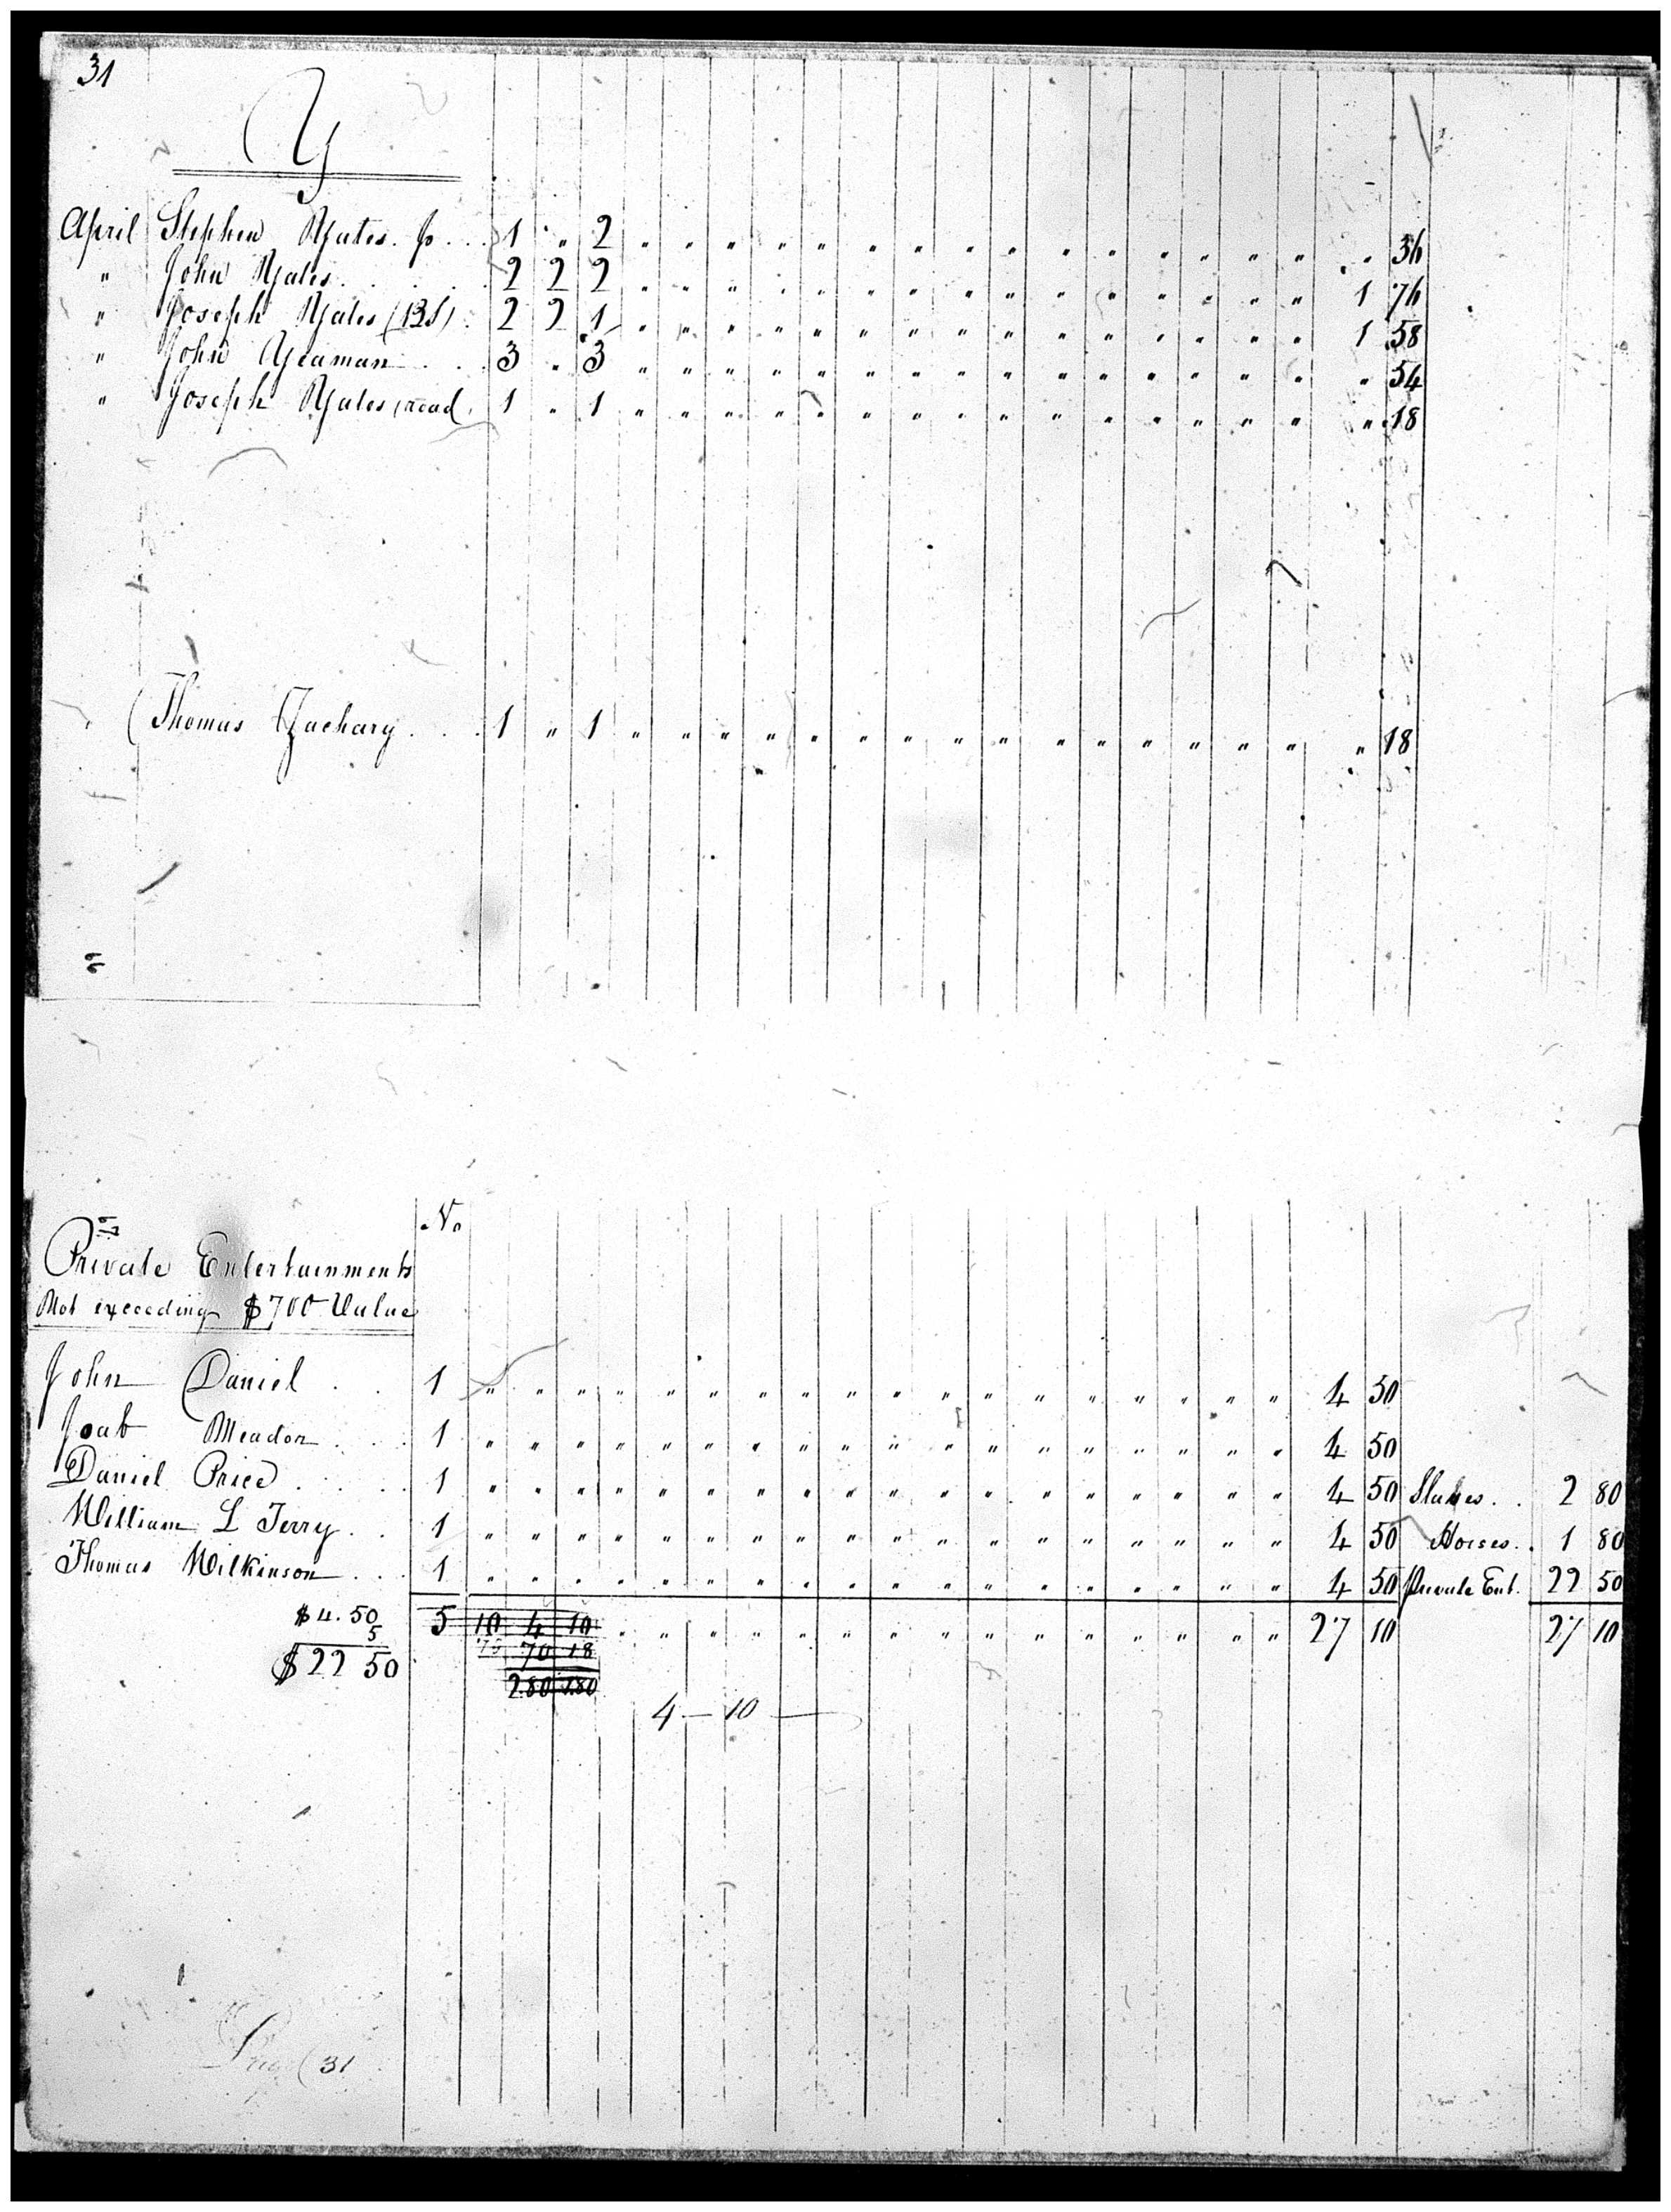 31
Y
April Stephen Yates. Jr . . . 1 " 2 " " " " " " " " " " " " " " " " 36
" John Yates . . . . 2 2 2 " " " " " " " " " " " " " " " 1 76
" Joseph Yates (BS) . 2 2 1 " " " " " " " " " " " " " " " 1 58
" John Yeaman . . . 3 " 3 " " " " " " " " " " " " " " " " 54
" Joseph Yates (read . 1 " 1 " " " " " " " " " " " " " " " " 18
Thomas Zachary . . . 1 " 1 " " " " " " " " " " " " " " " " 18
No
Private Entertainments
Not exceeding $700 Value
John Daniel . . 1 " " " " " " " " " " " " " " " " " " 4 50
Joab Meador . . . 1 " " " " " " " " " " " " " " " " " " 4 50
Daniel Price . . . . 1 " " " " " " " " " " " " " " " " " " 4 50 Slaves . . 2 80
William L Terry . . 1 " " " " " " " " " " " " " " " " " " 4 50 Horses . . 1 80
Thomas Wilkinson . . . 1 " " " " " " " " " " " " " " " " " " 4 50 Private Ent. 22 50
$4.50 5 10 4 10 " " " " " " " " " " " " " " " 27 10 27 10
5 70 18
$22 50 2.80 1.80
4 — 10 —
31